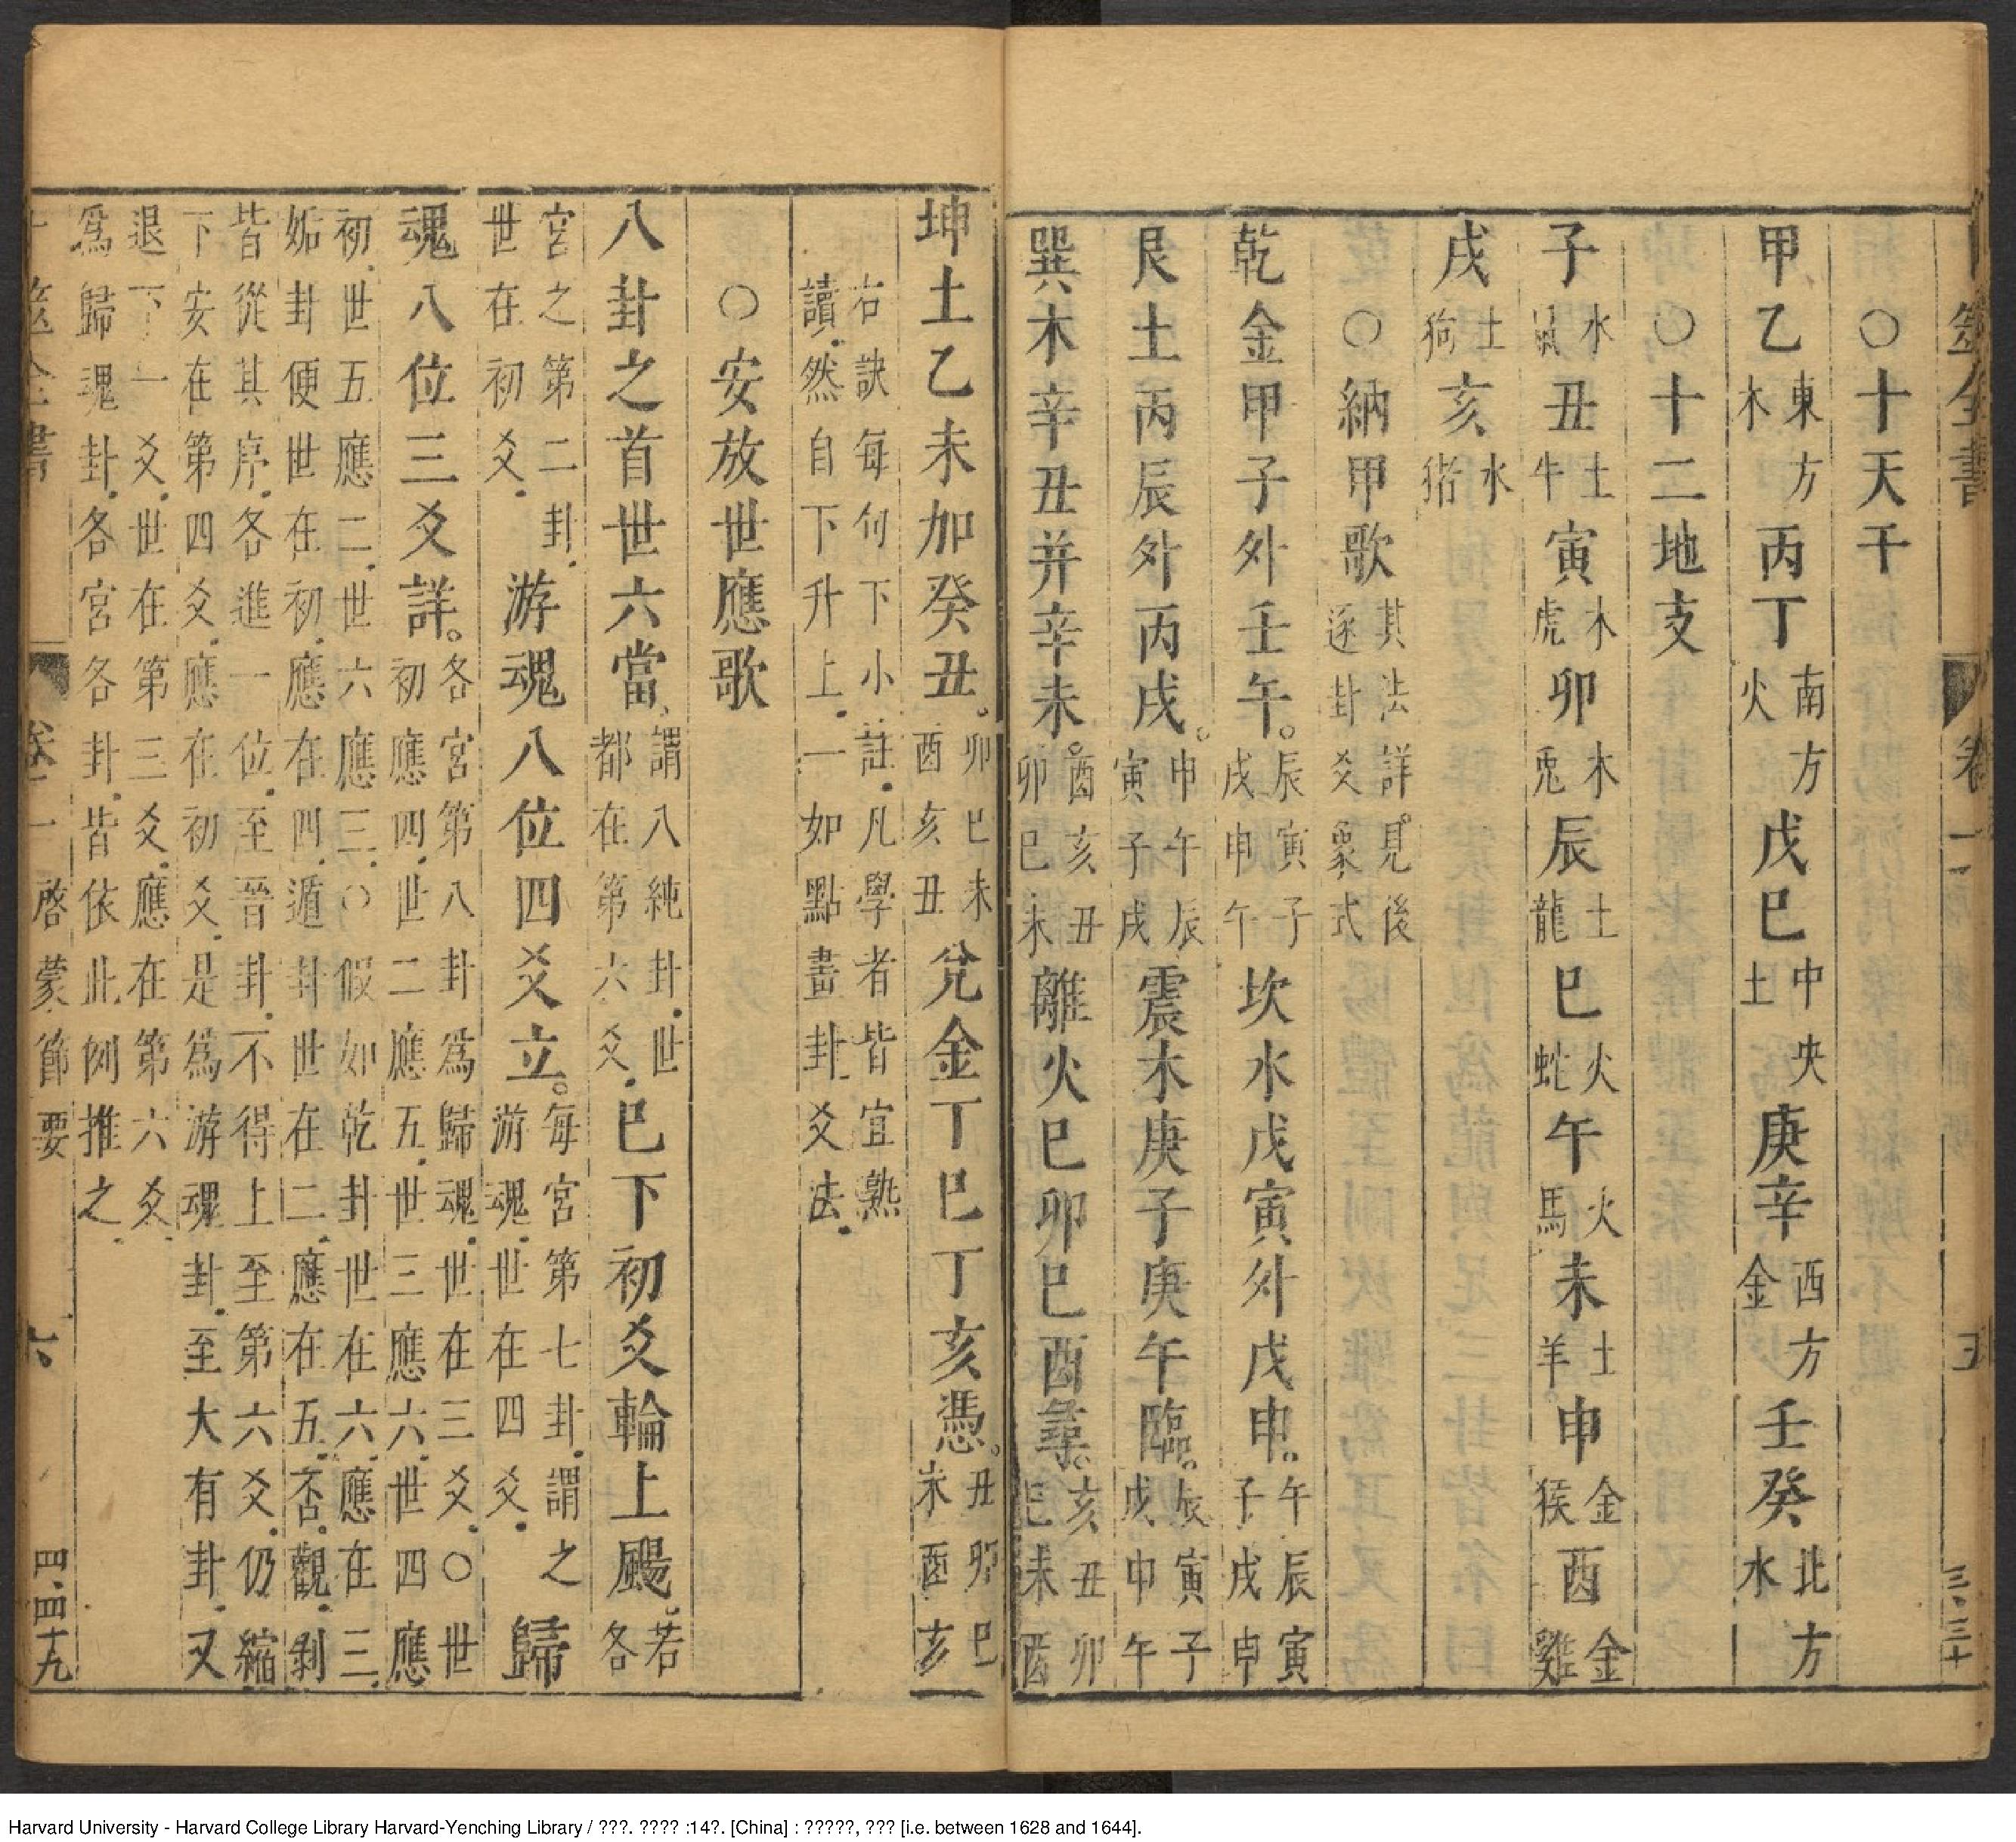 筮全書
卷一
五
三三十
○十天干
甲乙東方木丙丁南方火戊巳中央土庚辛西方金壬癸北方水
○十二地支
子水鼠丑土牛寅木虎卯木兎辰土龍巳火蛇午火馬未土羊申金猴酉金雞
戌土狗亥水猪
○納甲歌其法詳見後逐卦爻象式
乾金甲子外壬午。辰寅子戌申午坎水戊寅外戊申。午辰寅子戌申
艮土丙辰外丙戌。申午辰寅子戌震木庚子庚午臨。辰寅子戌申午
巽木辛丑并辛未。酉亥丑卯巳未離火巳卯巳酉㝷。亥丑卯巳未酉
坤土乙未加癸丑。卯巳未酉亥丑兌金丁巳丁亥憑。丑卯巳未酉亥
右訣每何下小註凡學者皆宜熟
讀然自下升上一如點畫卦爻法
○安放世應歌
八卦之首世六當謂八純卦世都在第六爻巳下初爻輪上颺。若各
宮之第二卦世在初爻游魂八位四爻立。每宮第七卦謂之游魂世在四爻歸
魂八位三爻詳。各宮第八卦爲歸魂世在三爻○世初應四世二應五世三應六世四應
初世五應二世六應三○假如乾卦世在六應在三
姤卦便世在初應在四遁卦世在二應在五否觀剥
皆從其序各進一位至晉卦不得上至第六爻仍縮
下安在第四爻應在初爻是爲游魂卦至大有卦又
退下一爻世在第三爻應在第六爻
爲歸魂卦各宮各卦皆依此例推之
筮全書
卷一
啓蒙節要
六
四四十九
Harvard University - Harvard College Library Harvard-Yenching Library / ???. ???? :14?. [China] : ?????, ??? [i.e. between 1628 and 1644].